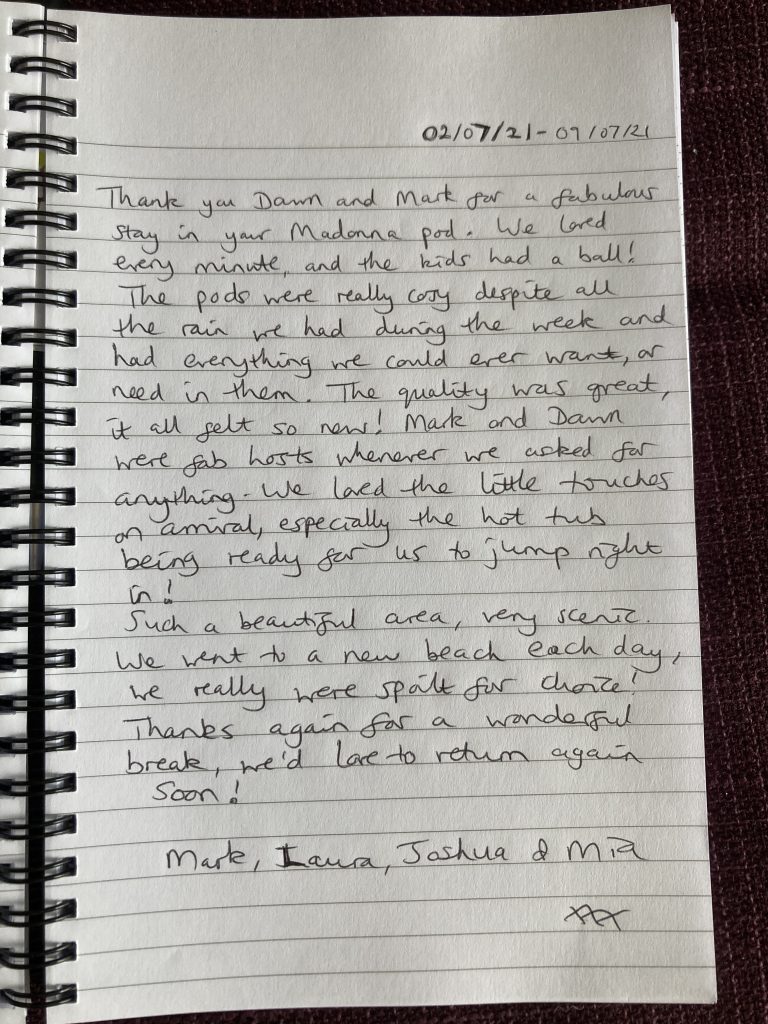 02/07/21 - 09/07/21
Thank you Dawn and Mark for a fabulous
stay in your Madonna pod. We loved
every minute, and the kids had a ball!
The pods were really cosy despite all
the rain we had during the week and
had everything we could ever want, or
need in them. The quality was great,
it all felt so new! Mark and Dawn
were fab hosts whenever we asked for
anything. We loved the little touches
on arrival, especially the hot tub
being ready for us to jump right
in!
Such a beautiful area, very scenic.
We went to a new beach each day,
we really were spoilt for choice!
Thanks again for a wonderful
break, we'd love to return again
soon!
Mark, Laura, Joshua & Mia
xxx